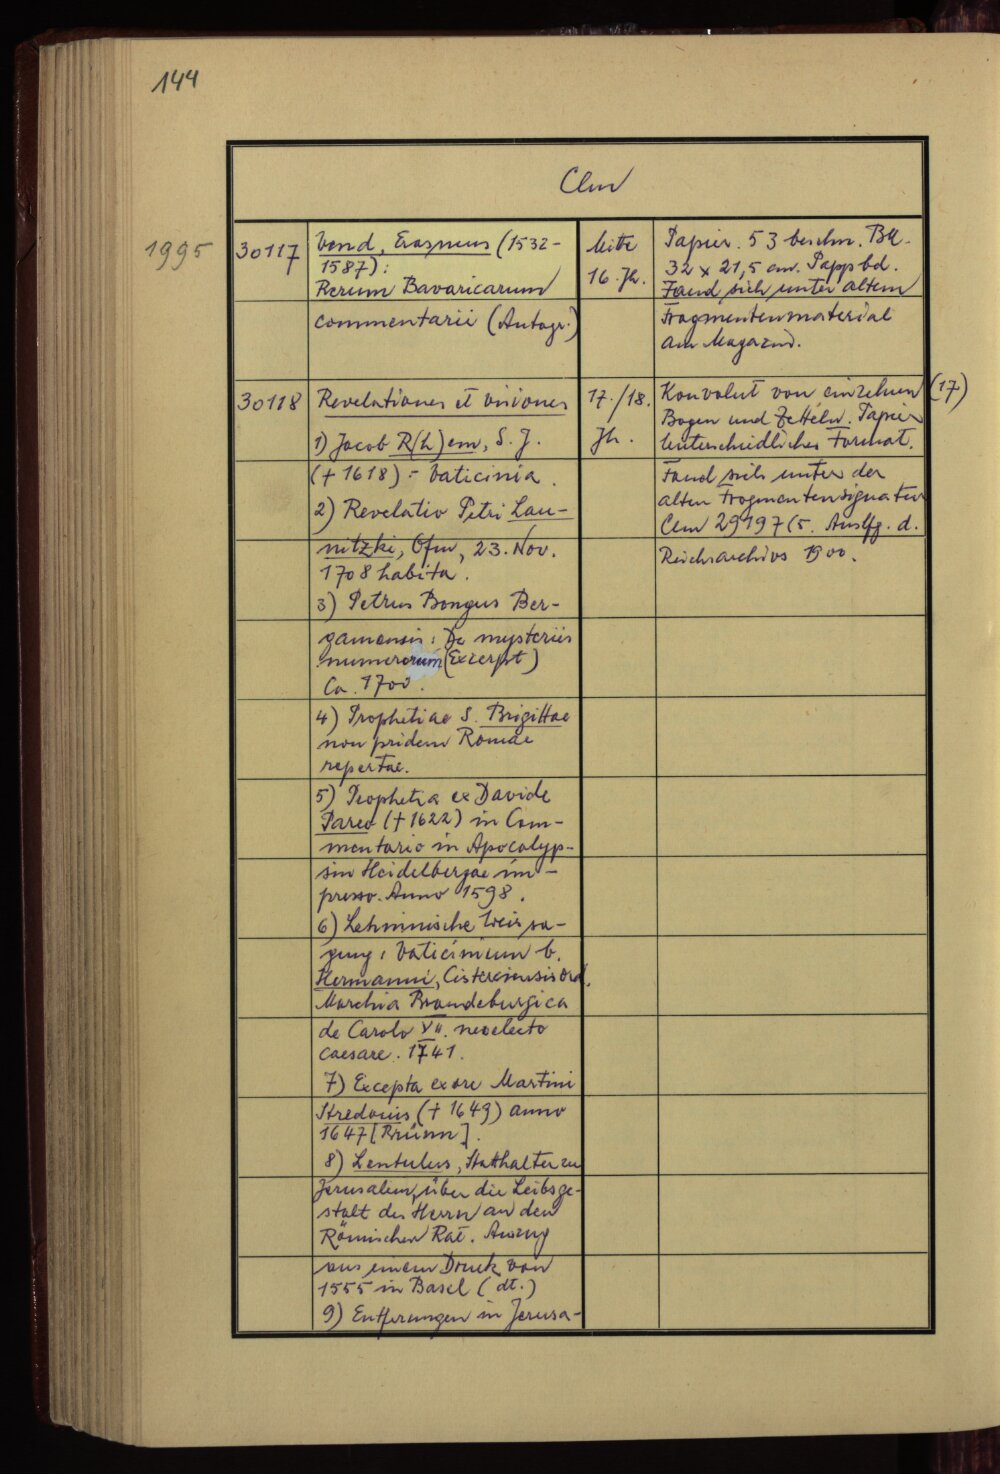 144
Clm
1995
30117
Vend, Erasmus (1532-
1587):
Rerum Bavaricarum
commentarii (Autogr.)
Mitte
16. Jh.
Papier. 53 beschr. Bll.
32 x 21,5 cm. Pappbd.
Fand sich unter altem
Fragmentenmaterial
am Magazin.
30118
Revelationes et visiones
1) Jacob R(h)em, S. J.
(† 1618): Vaticinia.
2) Revelatio Petri Lau-
nitzki, Ofm, 23. Nov.
1708 habita.
3) Petrus Bongus Ber-
gamensis: De mysteriis
numerorum (Exzerpt)
Ca. 1700.
4) Prophetiae S. Brigittae
non pridem Romae
repertae.
5) Prophetia ex Davide
Pareo († 1622) in Com-
mentario in Apocalyp-
sin Heidelbergae im-
presso. Anno 1598.
6) Lehninische Weissa-
gung: Vaticinium b.
Hermanni, Cisterciensis Ord.
Marchia Brandeburgica
de Carolo VII. neoelecto
caesare. 1741.
7) Excepta ex ore Martini
Stredonis († 1649) anno
1647 [Brünn].
8) Lentulus, Statthalter zu
Jerusalem, über die Leibsge-
stalt des Herrn an den
Römischen Rat. Auszug
aus einem Druck von
1555 in Basel (dt.)
9) Entferungen in Jerusa-
17./18.
Jh.
Konvolut von einzelnen (17)
Bogen und Zetteln. Papier
Unterschiedliches Format.
Fand sich unter der
alten Fragmentensignatur
Clm 29197 (5. Auslfg. d.
Reichsarchivs 1900.